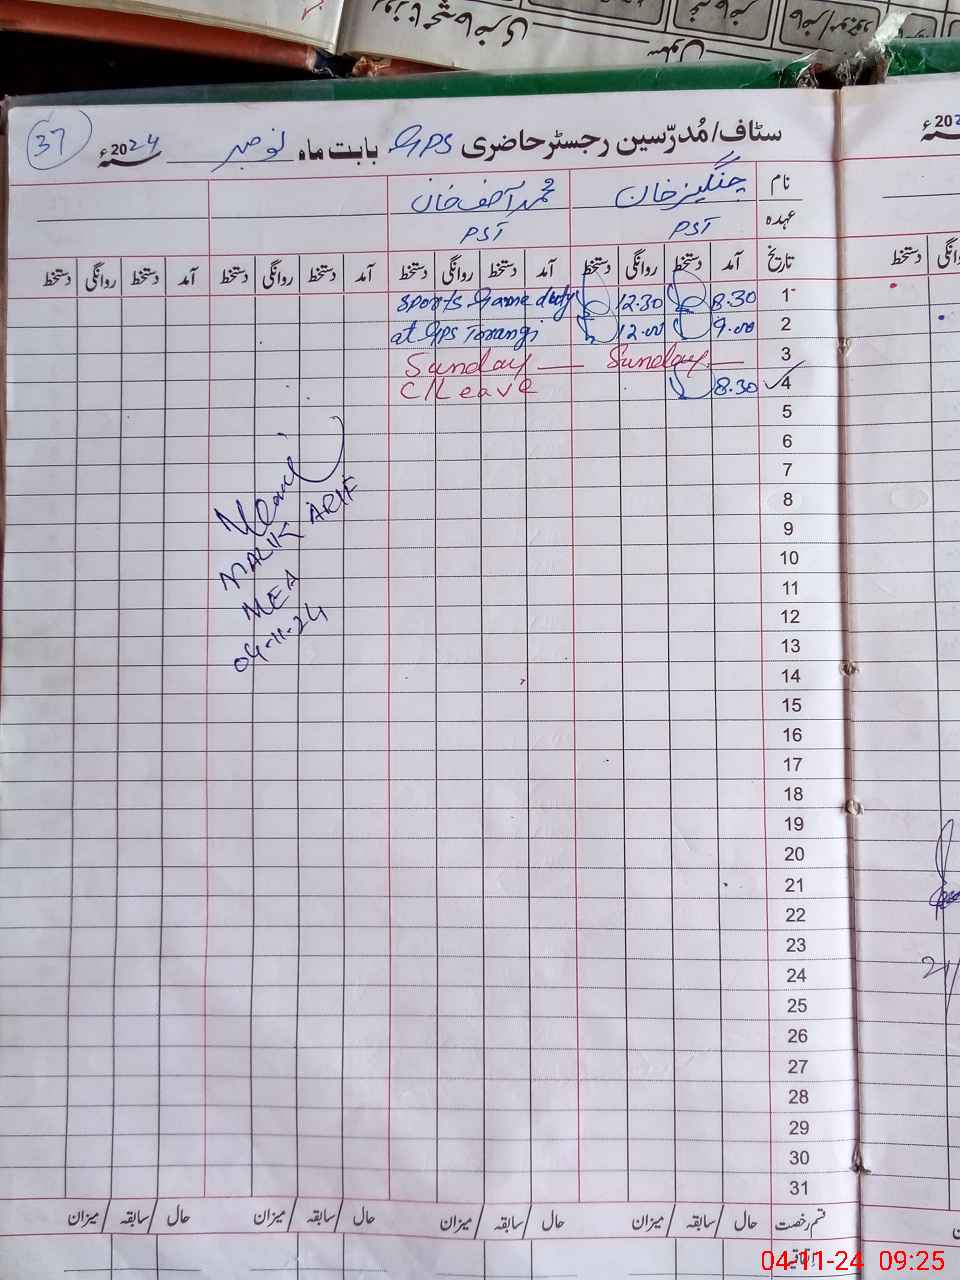 روزنامچہ حاضری
سٹاف/مُدرّسین رجسٹر حاضری GPS بابت ماہ نومبر 2024ء
37
نام چنگیز خان محمد آصف خان
عہدہ PST PST
تاریخ آمد دستخط روانگی دستخط آمد دستخط روانگی دستخط آمد دستخط روانگی دستخط آمد دستخط روانگی دستخط
1 8.30 12.30 Sports Game duty
2 9.00 12.00 at GPS Torangi
3 Sunday Sunday
4 8.30 C/Leave
5
6
7
8
9
10
11
12
13
14
15
16
17
18
19
20
21
22
23
24
25
26
27
28
29
30
31
MALIK ARIF
MEA
04-11-24
قسم رخصت حال / سابقہ / میزان حال / سابقہ / میزان حال / سابقہ / میزان حال / سابقہ / میزان
دستخط
21/
04-11-24 09:25